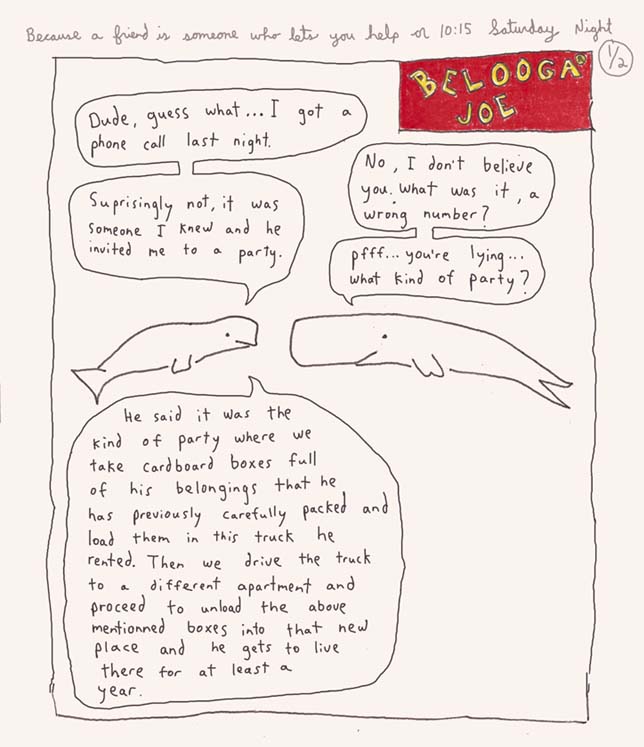 Because a friend is someone who lets you help or 10:15 Saturday Night
1/2
BELOOGA
JOE
Dude, guess what... I got a
phone call last night.
No, I don't believe
you. What was it, a
wrong number?
Suprisingly not, it was
someone I knew and he
invited me to a party.
pfff... you're lying...
what kind of party?
He said it was the
kind of party where we
take cardboard boxes full
of his belongings that he
has previously carefully packed and
load them in this truck he
rented. Then we drive the truck
to a different apartment and
proceed to unload the above
mentionned boxes into that new
place and he gets to live
there for at least a
year.